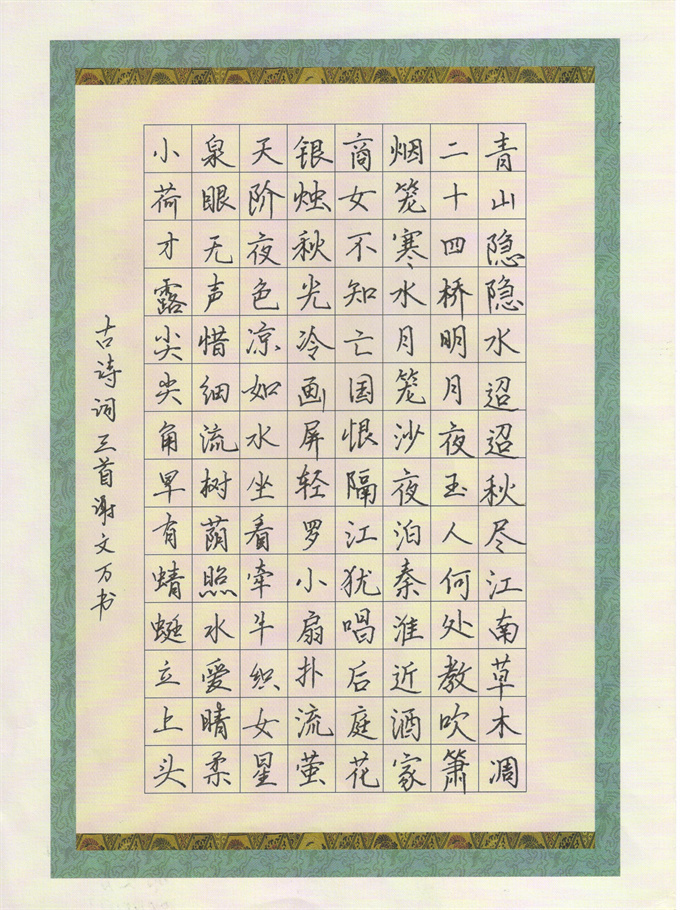 青山隐隐水迢迢秋尽江南草木凋
二十四桥明月夜玉人何处教吹箫
烟笼寒水月笼沙夜泊秦淮近酒家
商女不知亡国恨隔江犹唱后庭花
银烛秋光冷画屏轻罗小扇扑流萤
天阶夜色凉如水坐看牵牛织女星
泉眼无声惜细流树荫照水爱晴柔
小荷才露尖尖角早有蜻蜓立上头
古诗词三首谢文万书